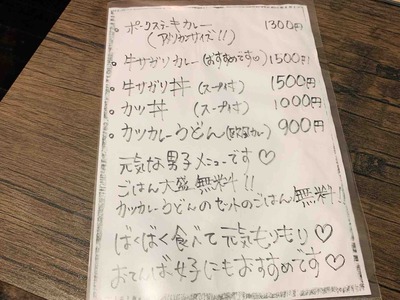 ・ポークステーキカレー 1300円
(アメリカンサイズ!!)
・牛サガリカレー(おすすめです♡) 1500円
・牛サガリ丼(スープ付) 1500円
・カツ丼(スープ付) 1000円
・カツカレーうどん(欧風カレー) 900円
元気な男子メニューです♡
ごはん大盛無料!!
カツカレーうどんのセットのごはん無料!!
ばくばく食べて元気もりもり♡
おてんば女子にもおすすめです♡